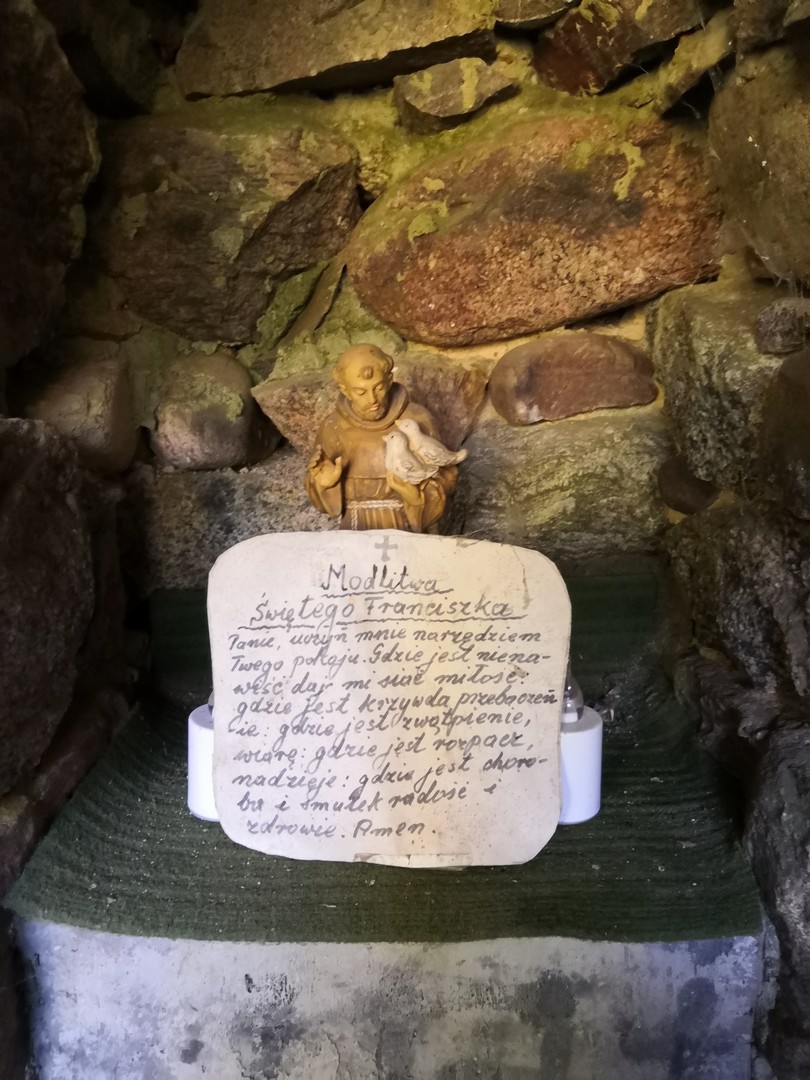 Modlitwa
Świętego Franciszka
Panie, uczyń mnie narzędziem
Twego pokoju. Gdzie jest niena-
wiść daj mi siać miłość:
gdzie jest krzywda przebaczen
ie: gdzie jest zwątpienie,
wiarę: gdzie jest rozpacz,
nadzieje: gdzie jest choro-
ba i smutek radość i
zdrowie. Amen.